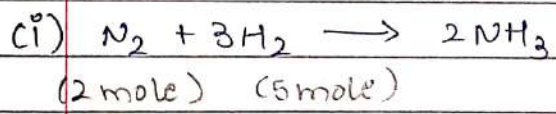 (i) N₂ + 3H₂ ⟶ 2NH₃
(2 mole) (5 mole)